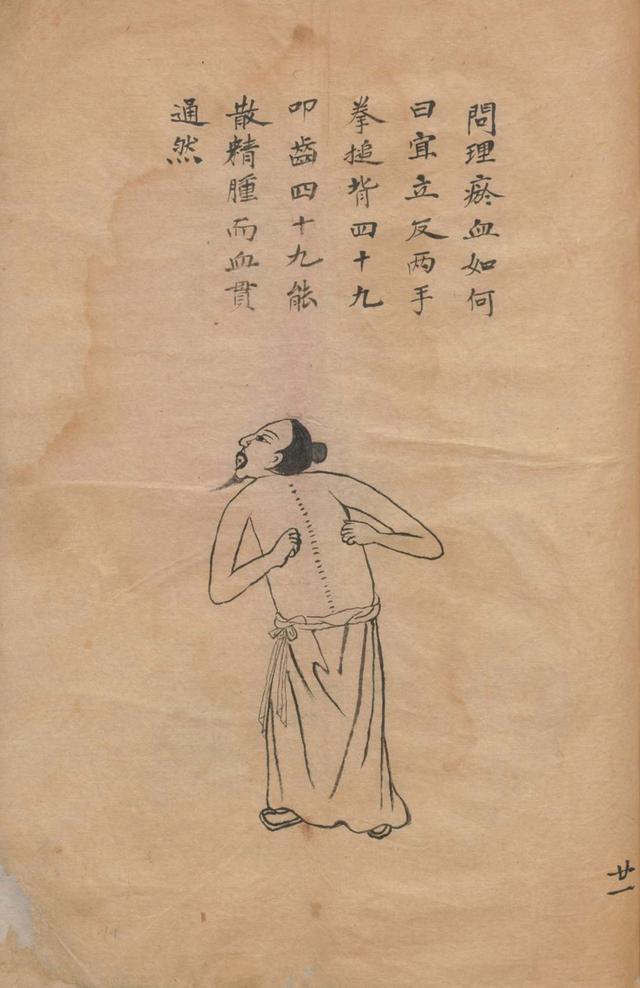 問理瘀血如何
曰宜立反两手
拳搥背四十九
叩齒四十九能
散精腫而血貫
通然
廿一